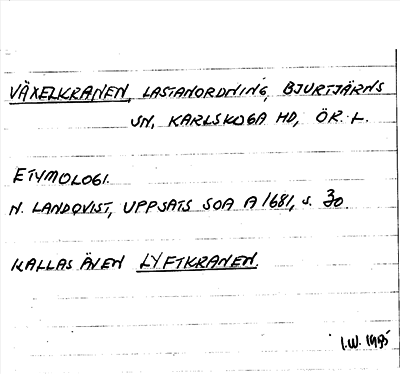 VÄXELKRANEN, LASTANORDNING, BJURTJÄRNS
SN, KARLSKOGA HD, ÖR. L.
ETYMOLOGI.
N. LANDQVIST, UPPSATS SOA A 1681, s. 30.
KALLAS ÄVEN LYFTKRANEN.
I.W. 1995